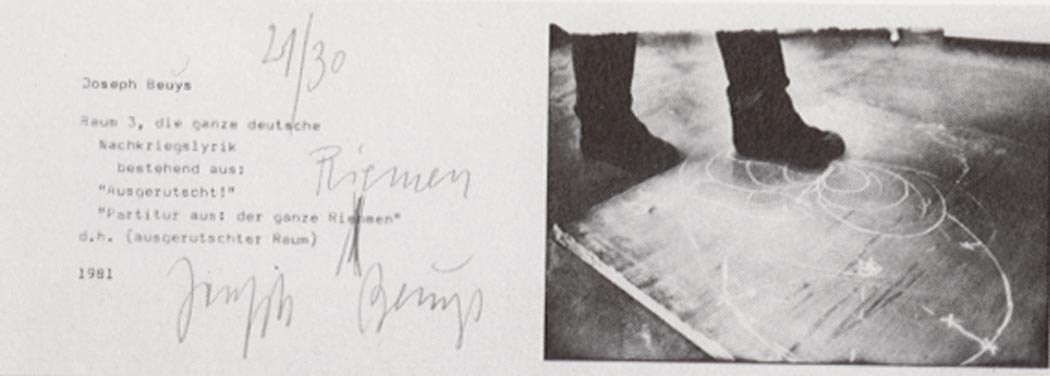 21/30
Joseph Beuys
Raum 3, die ganze deutsche
Nachkriegslyrik
bestehend aus:
"Ausgerutscht!"
Riemen
"Partitur aus: der ganze Riehmen"
d.h. (ausgerutschter Raum)
1981
Joseph Beuys